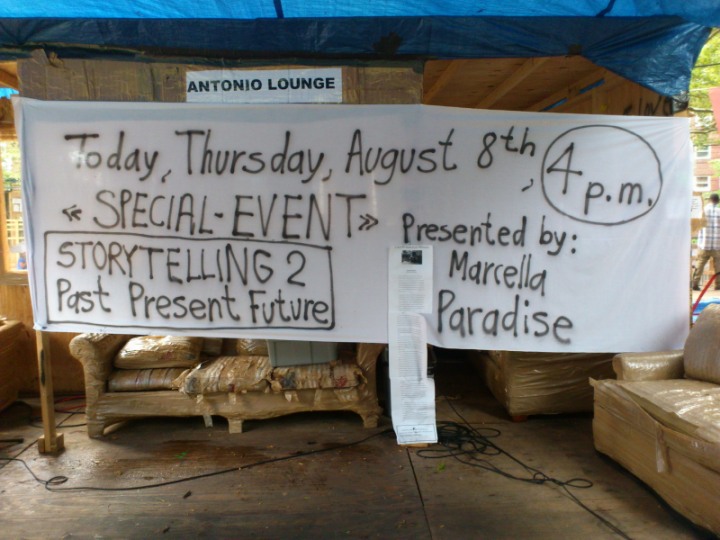 ANTONIO LOUNGE
Today, Thursday, August 8th, 4 p.m.
« SPECIAL-EVENT»
Presented by:
Marcella
Paradise
STORYTELLING 2
Past Present Future